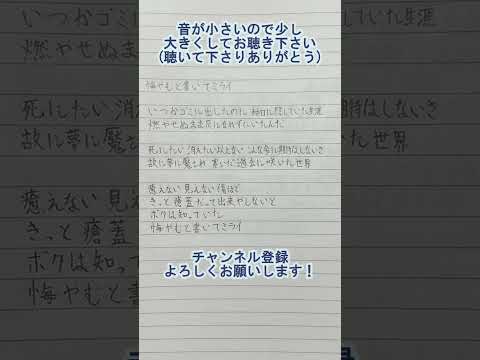 音が小さいので少し
大きくしてお聴き下さい
(聴いて下さりありがとう)
悔やむと書いてミライ
いつかゴミに出したのに 結局隠していた生涯
燃やせぬまま灰になれずにいたんだ
死にたい 消えたい 以上ない こんな命に期待はしないさ
故に夢に魘され 書いた 過去に咲いた世界
癒えない 見えない 傷ほど
きっと 瘡蓋だって出来やしないと
ボクは知っていた
悔やむと書いてミライ
チャンネル登録
よろしくお願いします！